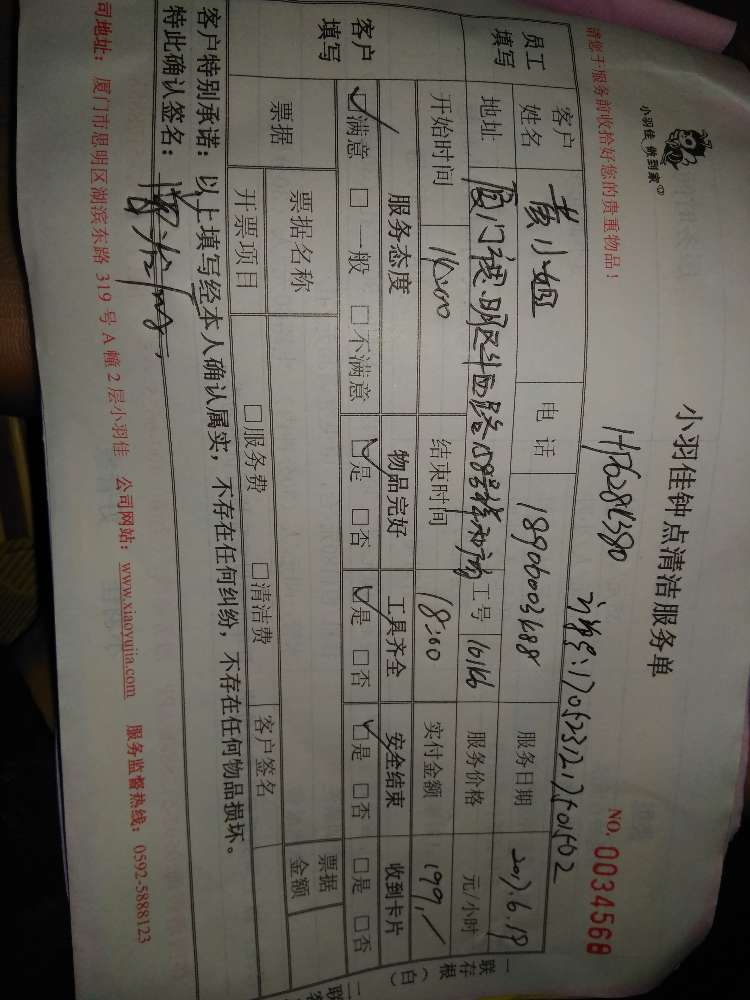 小羽佳 做到家
小羽佳钟点清洁服务单
请您于服务前收拾好您的贵重物品！
NO. 0034568
员工填写
客户姓名 黄小姐 电话 18906003688 服务日期 2017.6.19
地址 厦门 工号 10166 服务价格 元/小时
开始时间 14:00 结束时间 18:00 实付金额 199
客户填写
服务态度 物品完好 工具齐全 安全结束 收到卡片
☑满意 □一般 □不满意 ☑是 □否 ☑是 □否 ☑是 □否 □是 □否
票据 票据名称 票据金额
开票项目 □服务费 □清洁费 客户签名
客户特别承诺：以上填写经本人确认属实，不存在任何纠纷，不存在任何物品损坏。
特此确认签名：
司地址：厦门市思明区湖滨东路 319 号 A 幢 2 层小羽佳 公司网站：www.xiaoyujia.com 服务监督热线：0592-5888123
一联存根（白）
二联